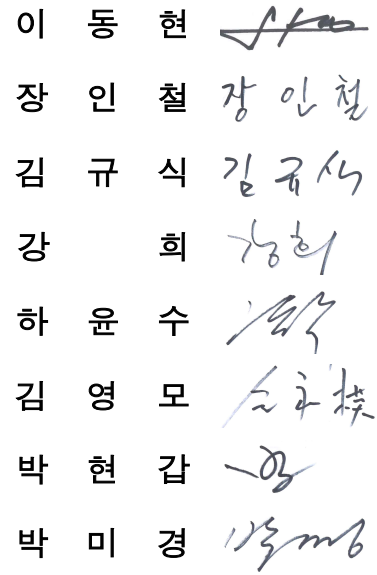 이 동 현
장 인 철 장 인 철
김 규 식 김 규 식
강 희 강 희
하 윤 수
김 영 모 金 永 模
박 현 갑
박 미 경 박 미 경